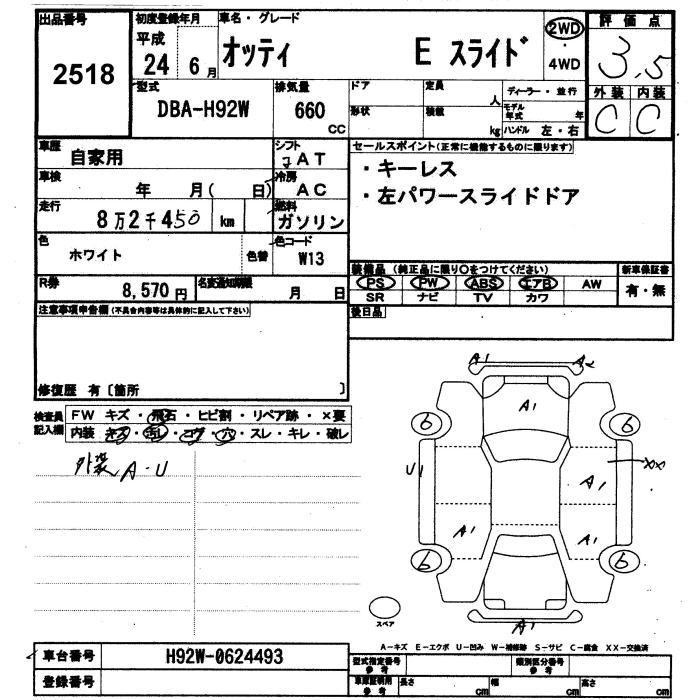 出品番号 初度登録年月 車名・グレード 評価点
2518 平成 24 6月 オッティ E スライド 2WD ・ 4WD 3.5
型式 排気量 ドア 定員 人 ディーラー・並行 外装 内装
DBA-H92W 660 CC 形状 積載 kg モデル年式 年 C C
ハンドル 左・右
車歴 自家用 シフト コAT セールスポイント(正常に機能するものに限ります)
車検 年 月( 日) 冷房 AC ・キーレス
走行 8万2千450 km 燃料 ガソリン ・左パワースライドドア
色 ホワイト 色替 色コード W13
装備品(純正品に限り○をつけてください) 新車保証書
R券 8,570円 名変通知期限 月 日 PS PW ABS エアB AW 有・無
SR ナビ TV カワ
注意事項申告欄(不具合内容等は具体的に記入して下さい) 後日品
修復歴 有〔箇所 〕
検査員記入欄 FW キズ・飛石・ヒビ割・リペア跡・×要
内装 キズ・汚レ・コゲ・穴・スレ・キレ・破レ
外装 A・U
A1 A2
A1
6 6
U1 XX
A1
A1 A1
6 6
スペア
A1
A-キズ E-エクボ U-凹み W-補修跡 S-サビ C-腐食 XX-交換済
車台番号 H92W-0624493 型式指定番号 参考 類別区分番号 参考
登録番号 車庫証明用 参考 長さ cm 幅 cm 高さ cm